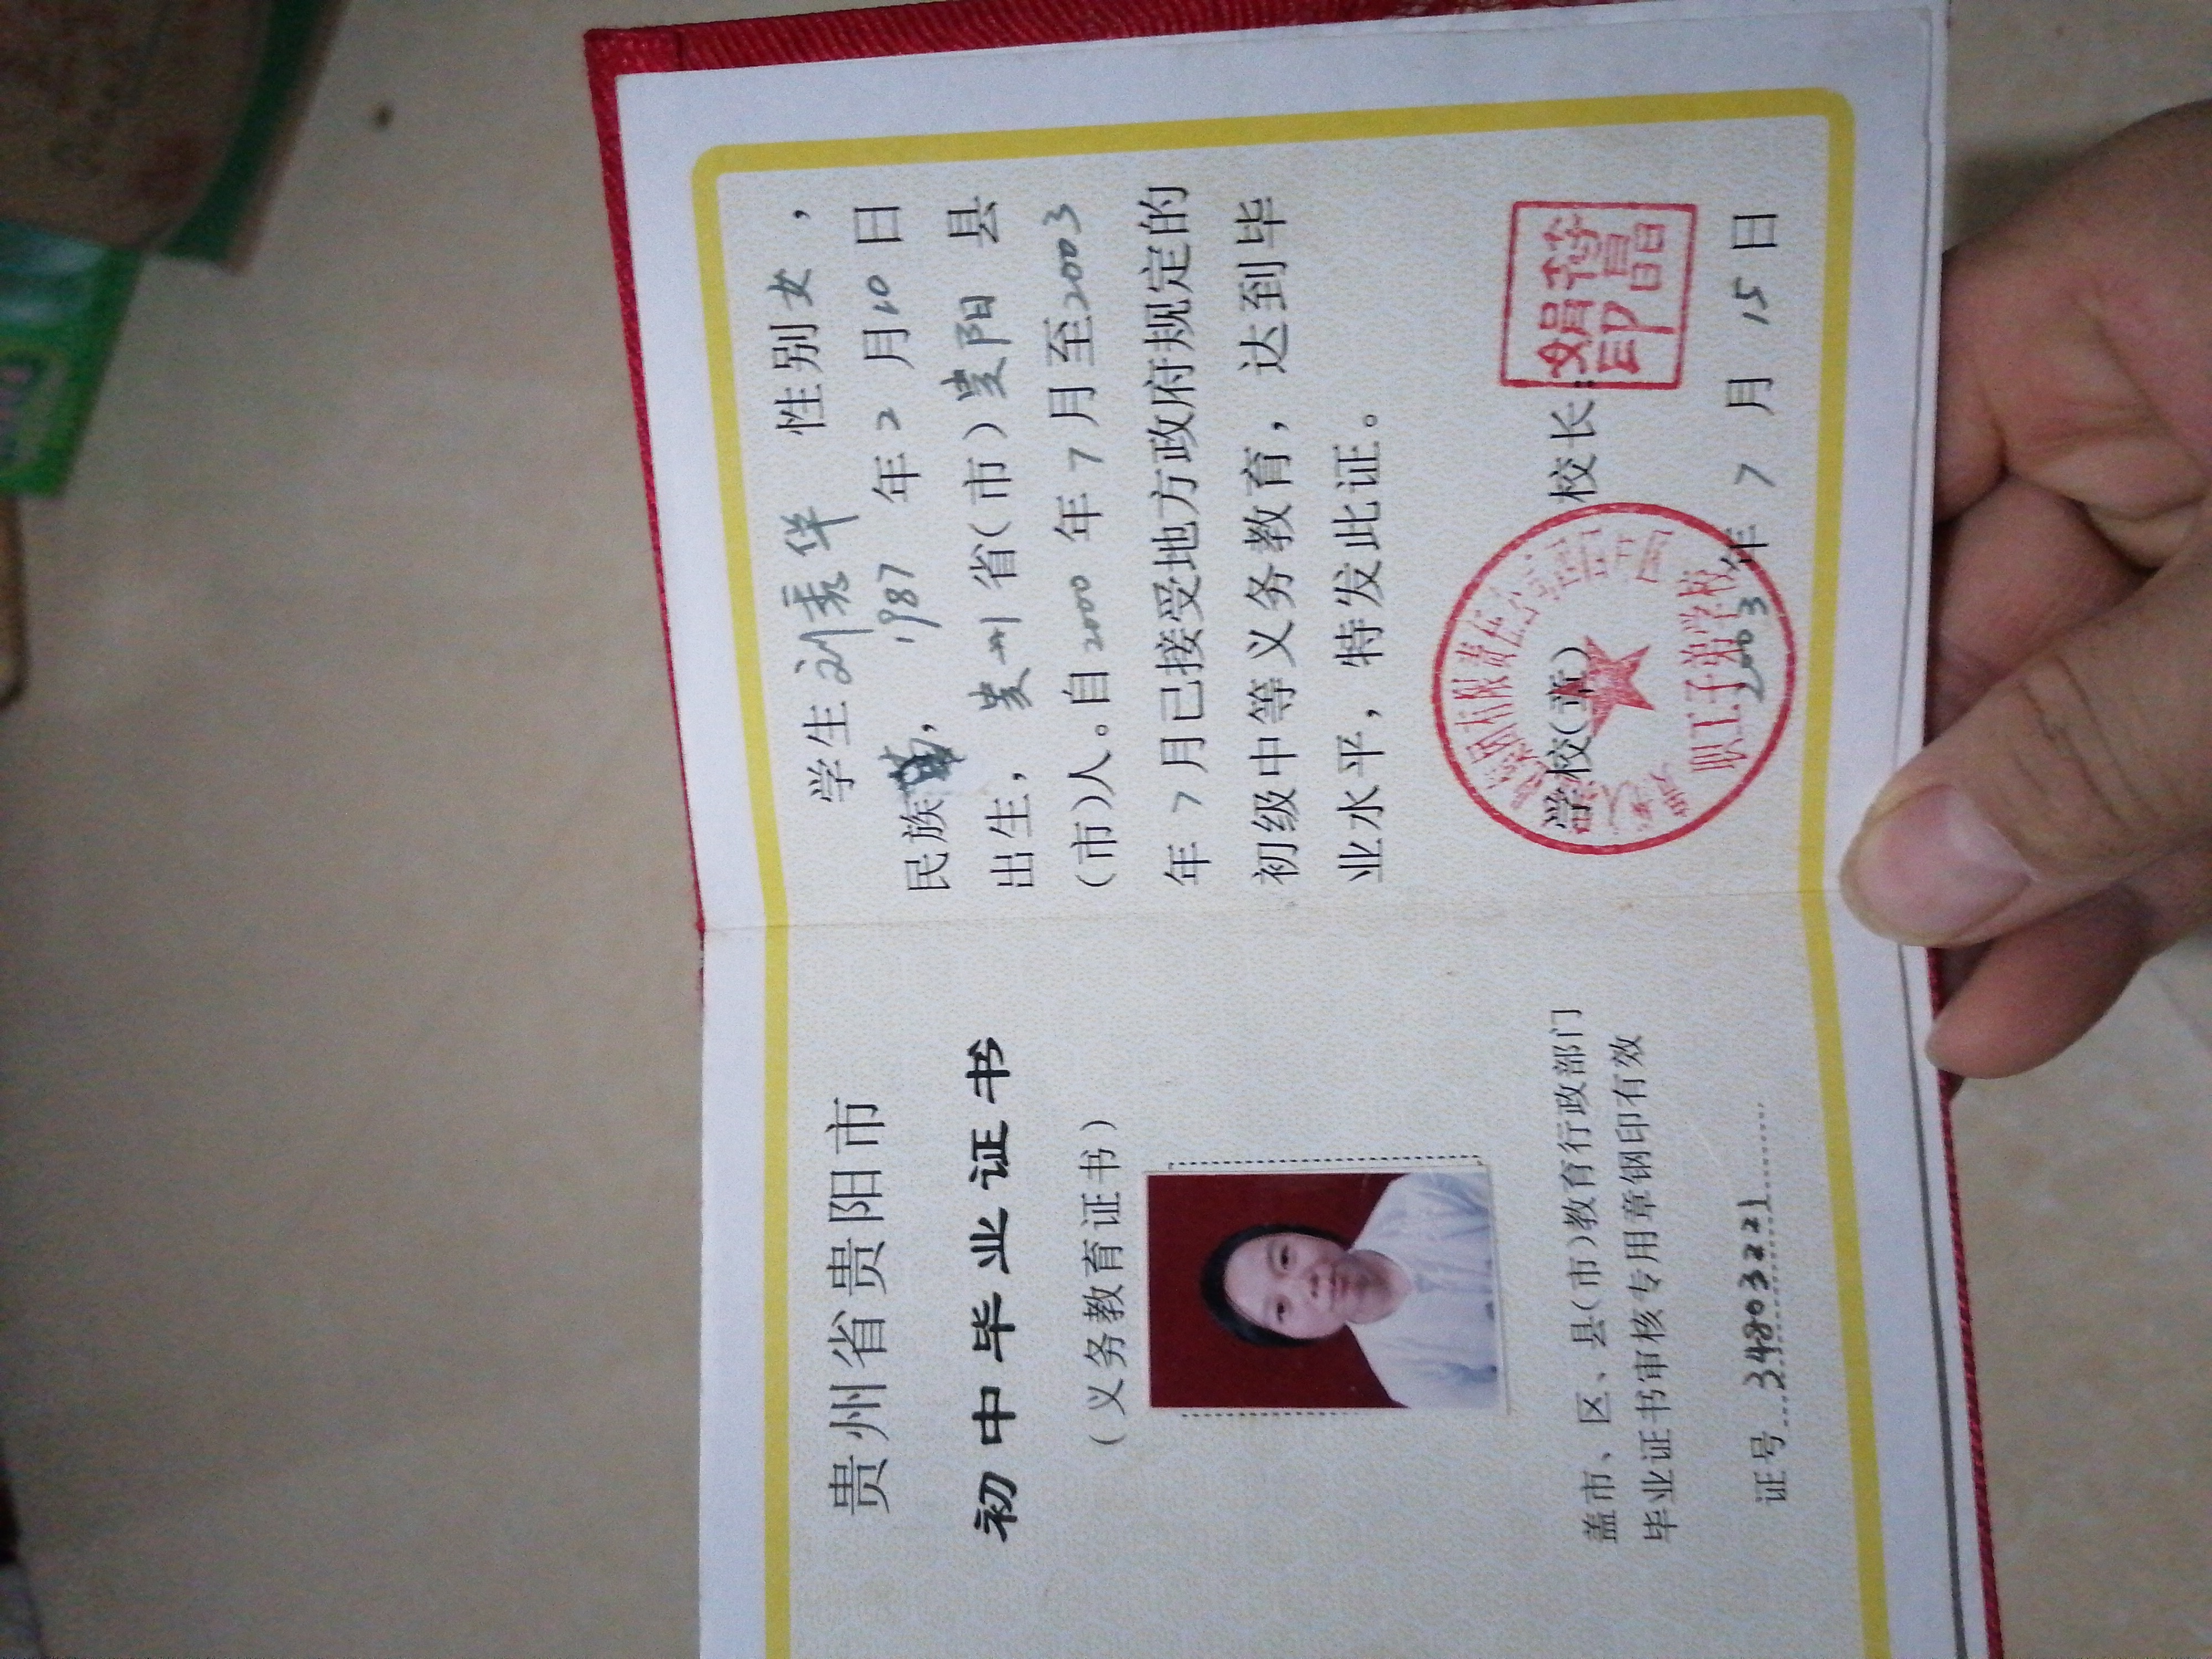 贵州省贵阳市
初中毕业证书
(义务教育证书)
盖市、区、县(市)教育行政部门
毕业证书审核专用章钢印有效
证号 34803221
学生刘 华 性别女，
民族 ， 1987 年 2 月10日
出生， 贵州 省(市)贵阳 县
(市)人。自 2000 年 7 月至2003
年 7 月已接受地方政府规定的
初级中等义务教育，达到毕
业水平，特发此证。
学校(章) 校长：
有限责任公司
职工子弟学校
2003年 7 月 15 日